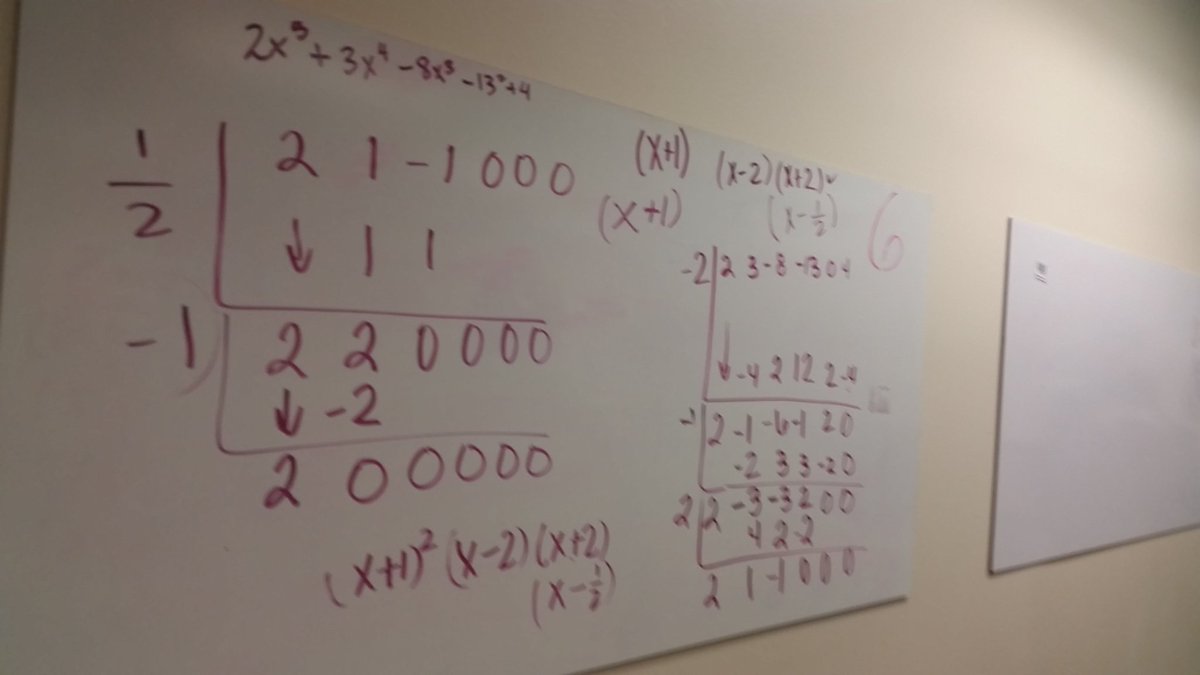 2x⁵ + 3x⁴ - 8x³ - 13² + 4
1/2 | 2 1 -1 0 0 0
↓ 1 1
-1 | 2 2 0 0 0 0
↓ -2
2 0 0 0 0 0
(x+1)² (x-2) (x+2)
(x-1/2)
(x+1) (x-2)(x+2)
(x+1) (x-1/2)
6
-2 | 2 3 -8 -13 0 4
↓ -4 2 12 2 -4
-1 | 2 -1 -6 -1 2 0
-2 3 3 -2 0
2 | 2 -3 -3 2 0 0
4 2 -2
2 1 -1 0 0 0